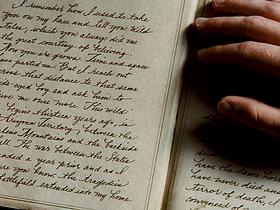 I remember how I used to take
you on my knee and tell you wild
tales, which you always did me
the great courtesy of believing.
Now you are grown. Time and space
have parted us. But I reach out
across that distance to that same
wide-eyed boy and ask him to
believe me once more. This wild
begins thirteen years ago, in
Oregon Territory, between the
Mountains and the backside
hell. The war between the States
ended a year prior and as I
you know, the tragedies
battlefield extended into my home.
have the same
have never died
terror of death,
conveyed